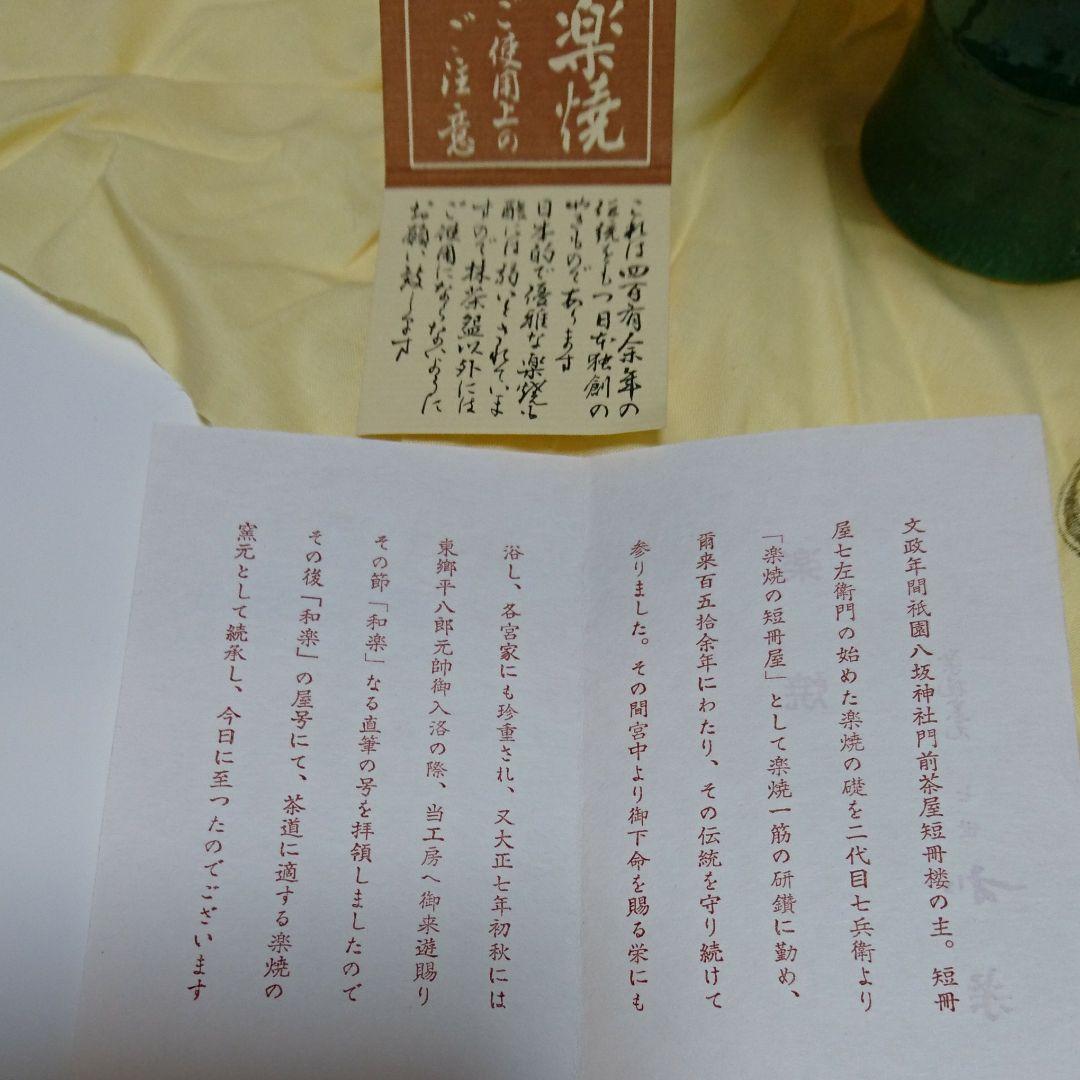 楽焼
ご使用上の
ご注意
これは四百有余年の
伝統をもつ日本独創の
やきものであります
日本的で優雅な楽焼も
酸には弱いとされていま
すので抹茶盌以外には
ご使用にならないように
お願い致します
文政年間祇園八坂神社門前茶屋短冊楼の主。短冊
屋七左衛門の始めた楽焼の礎を二代目七兵衛より
「楽焼の短冊屋」として楽焼一筋の研鑽に勤め、
爾来百五拾余年にわたり、その伝統を守り続けて
参りました。その間宮中より御下命を賜る栄にも
浴し、各宮家にも珍重され、又大正七年初秋には
東郷平八郎元帥御入洛の際、当工房へ御来遊賜り
その節「和楽」なる直筆の号を拝領しましたので
その後「和楽」の屋号にて、茶道に適する楽焼の
窯元として続承し、今日に至つたのでございます